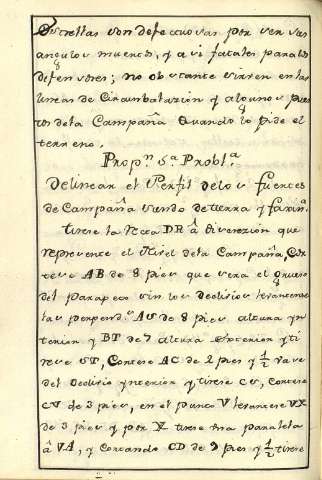 Estrellas son defectuosas por ser sus
angulos muertos, y asi fatales para los
defensores; no obstante sirven en las
lineas de Circunbalazion y algunos pues
tos dela Campaña Quando lo pide el
terreno.
Propn. 6a Probla.
Delinear el Perfil delos fuertes
de Campaña siendo de tierra y faxina.
Tirese la Recta DR â discrezion que
represente el Nivel dela Campaña, Cor
tese AB de 8 pies que sera el grueso
del parapeto sin los declivios levantense
las perpends. AS de 8 pies altura yn
terior y BT de 7 altura exterior y ti
rese ST, Cortese AC de 2 pies y ½
del declivio ynterior y tirese CS, cortese
CV de 3 pies, en el punto V levantese VX
de 3 pies y por X tirese una paralela
â VA, y Cortando CD de 9 pies y ½ tirese